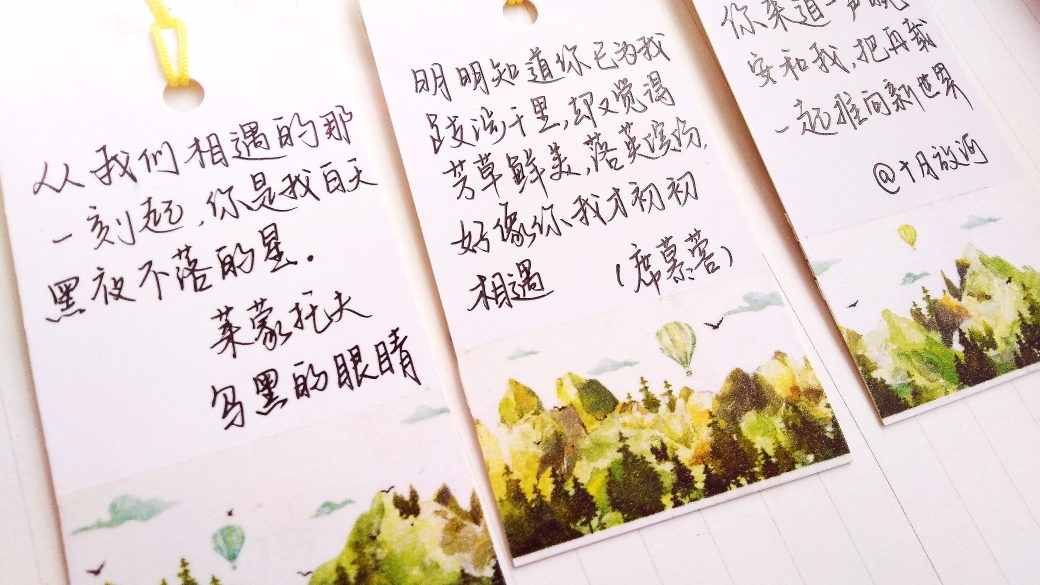 从我们相遇的那
一刻起,你是我白天
黑夜不落的星.
莱蒙托夫
乌黑的眼睛
明明知道你已为我
跋涉千里,却又觉得
芳草鲜美,落英缤纷,
好像你我才初初
相遇 (席慕蓉)
你来道一声晚
安和我,把再载
一起推向新世界
@十月放河